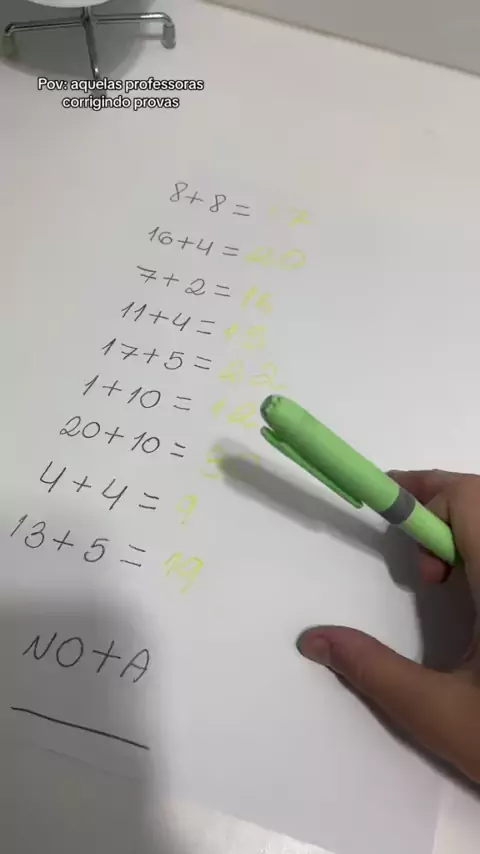 Pov: aquelas professoras
corrigindo provas
8+8= 17
16+4= 20
7+2=
11+4= 15
17+5= 22
1+10= 12
20+10=
4+4= 9
13+5= 19
NOTA